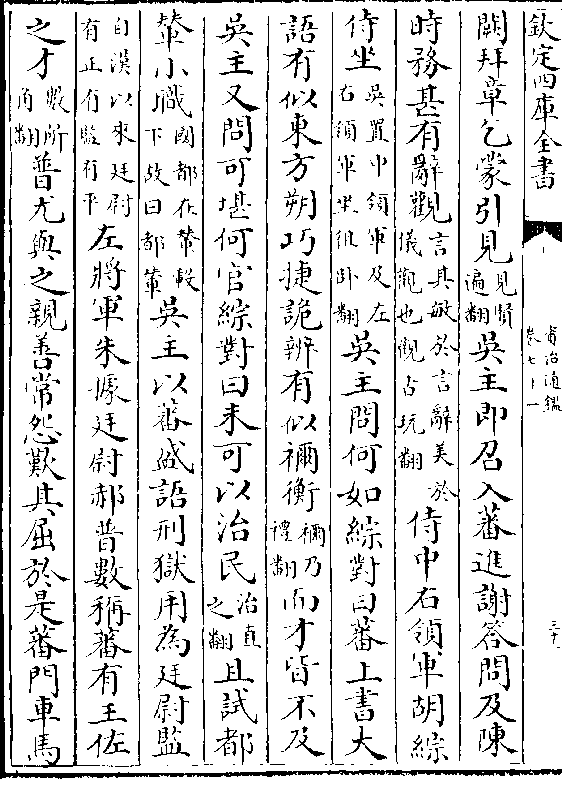 欽定四庫全書
資治通鑑
卷七十一
闕拜章乞蒙引見見賢遍翻吳主即召入蕃進謝答問及陳
時務甚有辭觀言其敏於言辭美於儀觀也觀古玩翻侍中右領軍胡綜
侍坐吳置中領軍及左右領軍坐徂卧翻吳主問何如綜對曰蕃上書大
語有似東方朔巧捷詭辨有似禰衡禰乃禮翻而才皆不及
吳主又問可堪何官綜對曰未可以治民治直之翻且試都
輦小職國都在輦轂下故曰都輦吳主以蕃盛語刑獄用為廷尉監
自漢以來廷尉有正有監有平左將軍朱據廷尉郝普數稱蕃有王佐
之才數所角翻普尤與之親善常怨歎其屈於是蕃門車馬